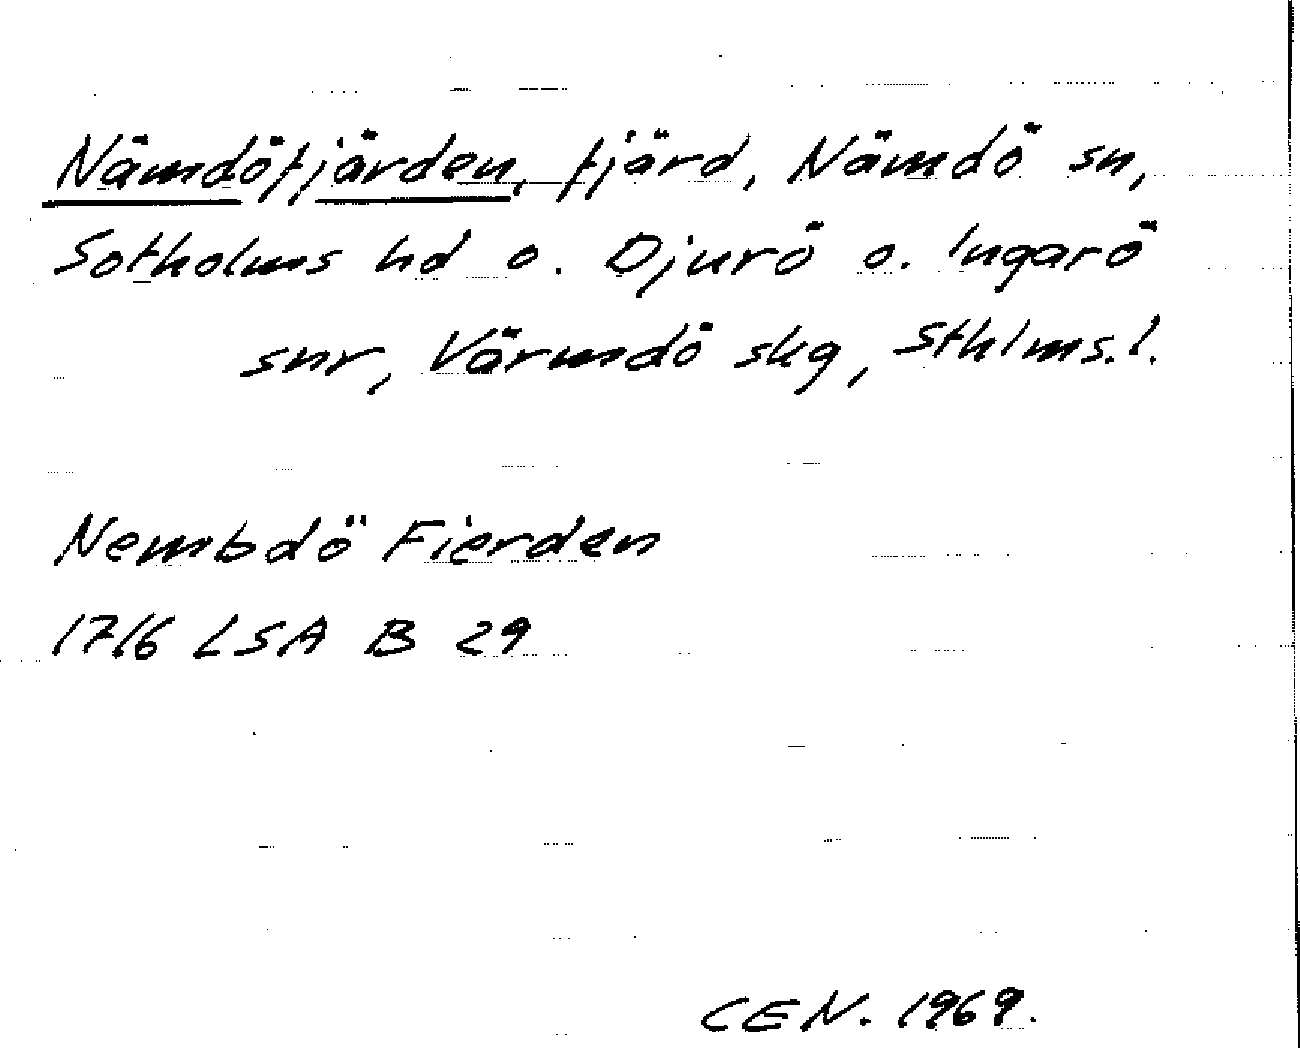 Nämdöfjärden, fjärd, Nämdö sn,
Sotholms hd o. Djurö o. Ingarö
snr, Värmdö skg, Sthlms.l.
Nembdö Fierden
1716 LSA B 29
CEN. 1969.